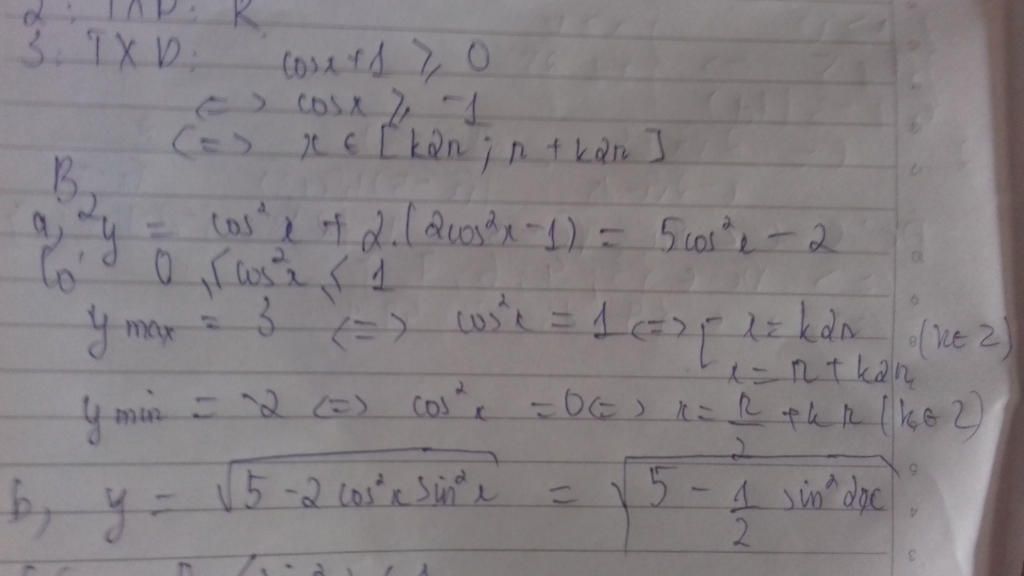 2: TXD: R
3: TXD: cosx+1 ⩾ 0
<=> cosx ⩾ -1
<=> x ∈ [k2π; π + k2π]
B,
a, 2 y = cos²x + 2.(2cos²x-1) = 5cos²x - 2
Có 0 ⩽ cos²x ⩽ 1
y max = 3 <=> cos²x = 1 <=> [ x = k2π (k∈Z)
x = π + k2π
y min = -2 <=> cos²x = 0 <=> x = π/2 + kπ (k∈Z)
b, y = √(5 - 2cos²x sin²x) = √(5 - 1/2 sin²2x)